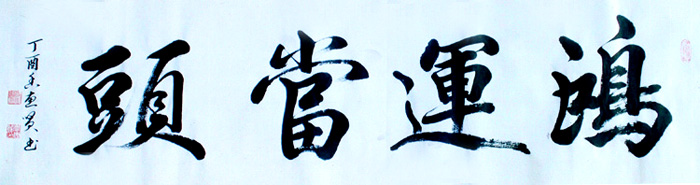 鴻運當頭
丁酉